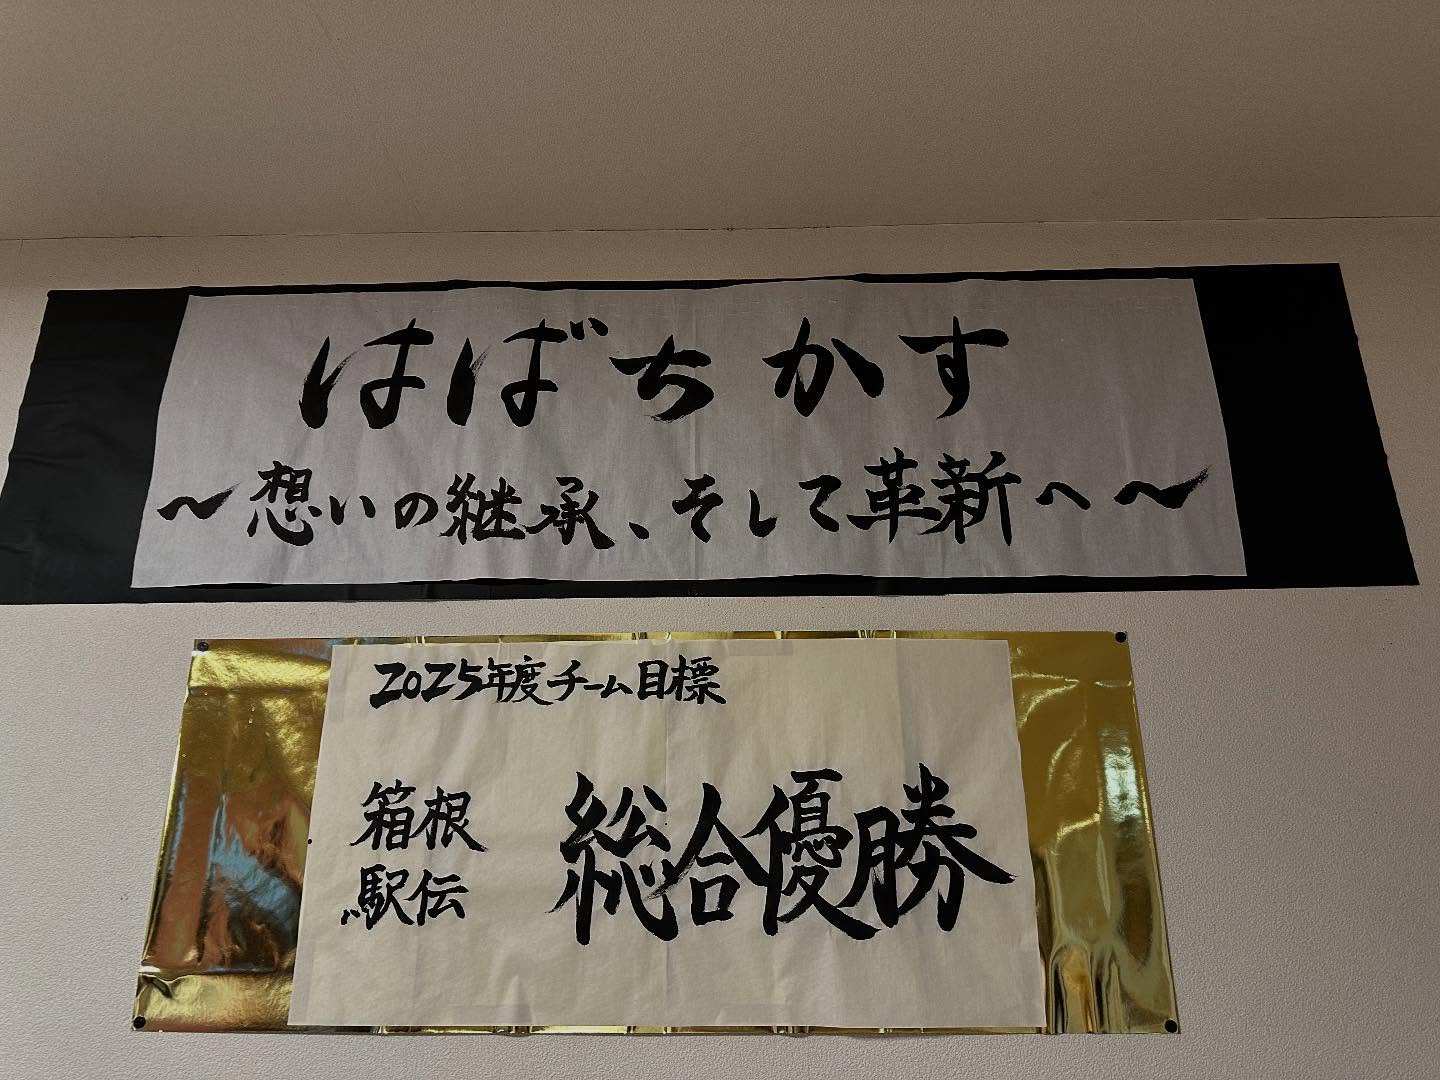 はばちかす
～想いの継承、そして革新へ～
2025年度チーム目標
箱根
駅伝
総合優勝